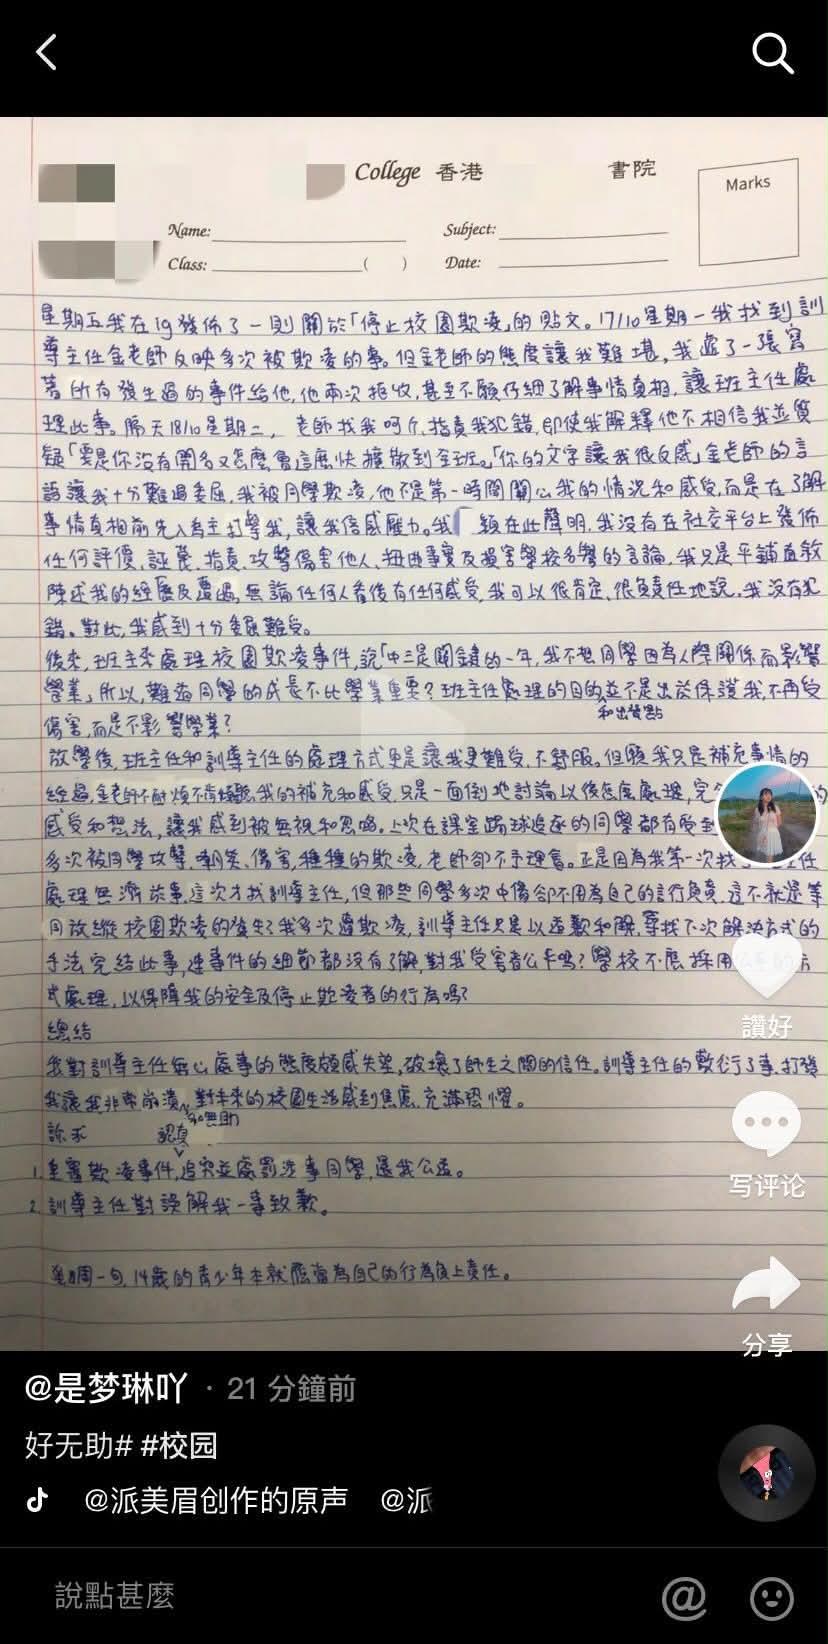 College 香港 書院
Marks
Name: Subject:
Class: ( ) Date:
星期五我在ig發佈了一則關於「停止校園欺凌」的貼文。17/10星期一我找到訓
導主任金老師反映多次被欺凌的事。但金老師的態度讓我難堪,我遞了一張寫
著所有發生過的事件給他,他兩次拒收,甚至不願仔細了解事情真相,讓班主任處
理此事。隔天18/10星期二, 老師找我呵斥、指責我犯錯,即使我解釋他不相信我並質
疑「要是你沒有開名又怎麼會這麼快擴散到全班。」「你的文字讓我很反感」金老師的言
語讓我十分難過委屈,我被同學欺凌,他不是第一時間關心我的情況和感受,而是在了解
事情真相前先入為主打擊我,讓我倍感壓力。我 穎在此聲明,我沒有在社交平台上發佈
任何評價、詆毀、指責、攻擊傷害他人、扭曲事實及損害學校名譽的言論,我只是平鋪直敘
陳述我的經歷及遭遇,無論任何人看後有任何感受,我可以很肯定、很負責任地說,我沒有犯
錯。對此,我感到十分委屈難受。
後來,班主任處理校園欺凌事件,說「中三是關鍵的一年,我不想同學因為人際關係而影響
學業」所以,難道同學的成長不比學業重要?班主任處理的目的並不是出於保護我,不再受
和出發點
傷害,而是不影響學業?
放學後,班主任和訓導主任的處理方式更是讓我更難受、不舒服。但願我只是補充事情的
經過,金老師不耐煩不肯傾聽我的補充和感受,只是一面倒地討論以後怎麼處理,完 的
感受和想法,讓我感到被無視和忽略。上次在課室踢球追逐的同學都有受到
多次被同學攻擊、嘲笑、傷害,種種的欺凌,老師卻不予理會。正是因為我第一次找 主任
處理無濟於事,這次才找訓導主任,但那些同學多次中傷卻不用為自己的言行負責,這不就是等
同放縱校園欺凌的發生?我多次遭欺凌,訓導主任只是以道歉和解,尋找下次解決方式的
手法完結此事,連事件的細節都沒有了解,對我受害者公平嗎?學校不應採用 的方
式處理,以保障我的安全及停止欺凌者的行為嗎?
總結
我對訓導主任無心處事的態度頗感失望,破壞了師生之間的信任。訓導主任的敷衍了事、打發
我讓我非常崩潰,對未來的校園生活感到焦慮、充滿恐懼。
和無助
訴求 認真
1. 重審欺凌事件,追究並處罰涉事同學,還我公道。
2. 訓導主任對誤解我一事致歉。
強調一句,14歲的青少年本就應當為自己的行為負上責任。
讚好
写评论
分享
@是梦琳吖 · 21 分鐘前
好无助# #校园
@派美眉创作的原声 @派
說點甚麼